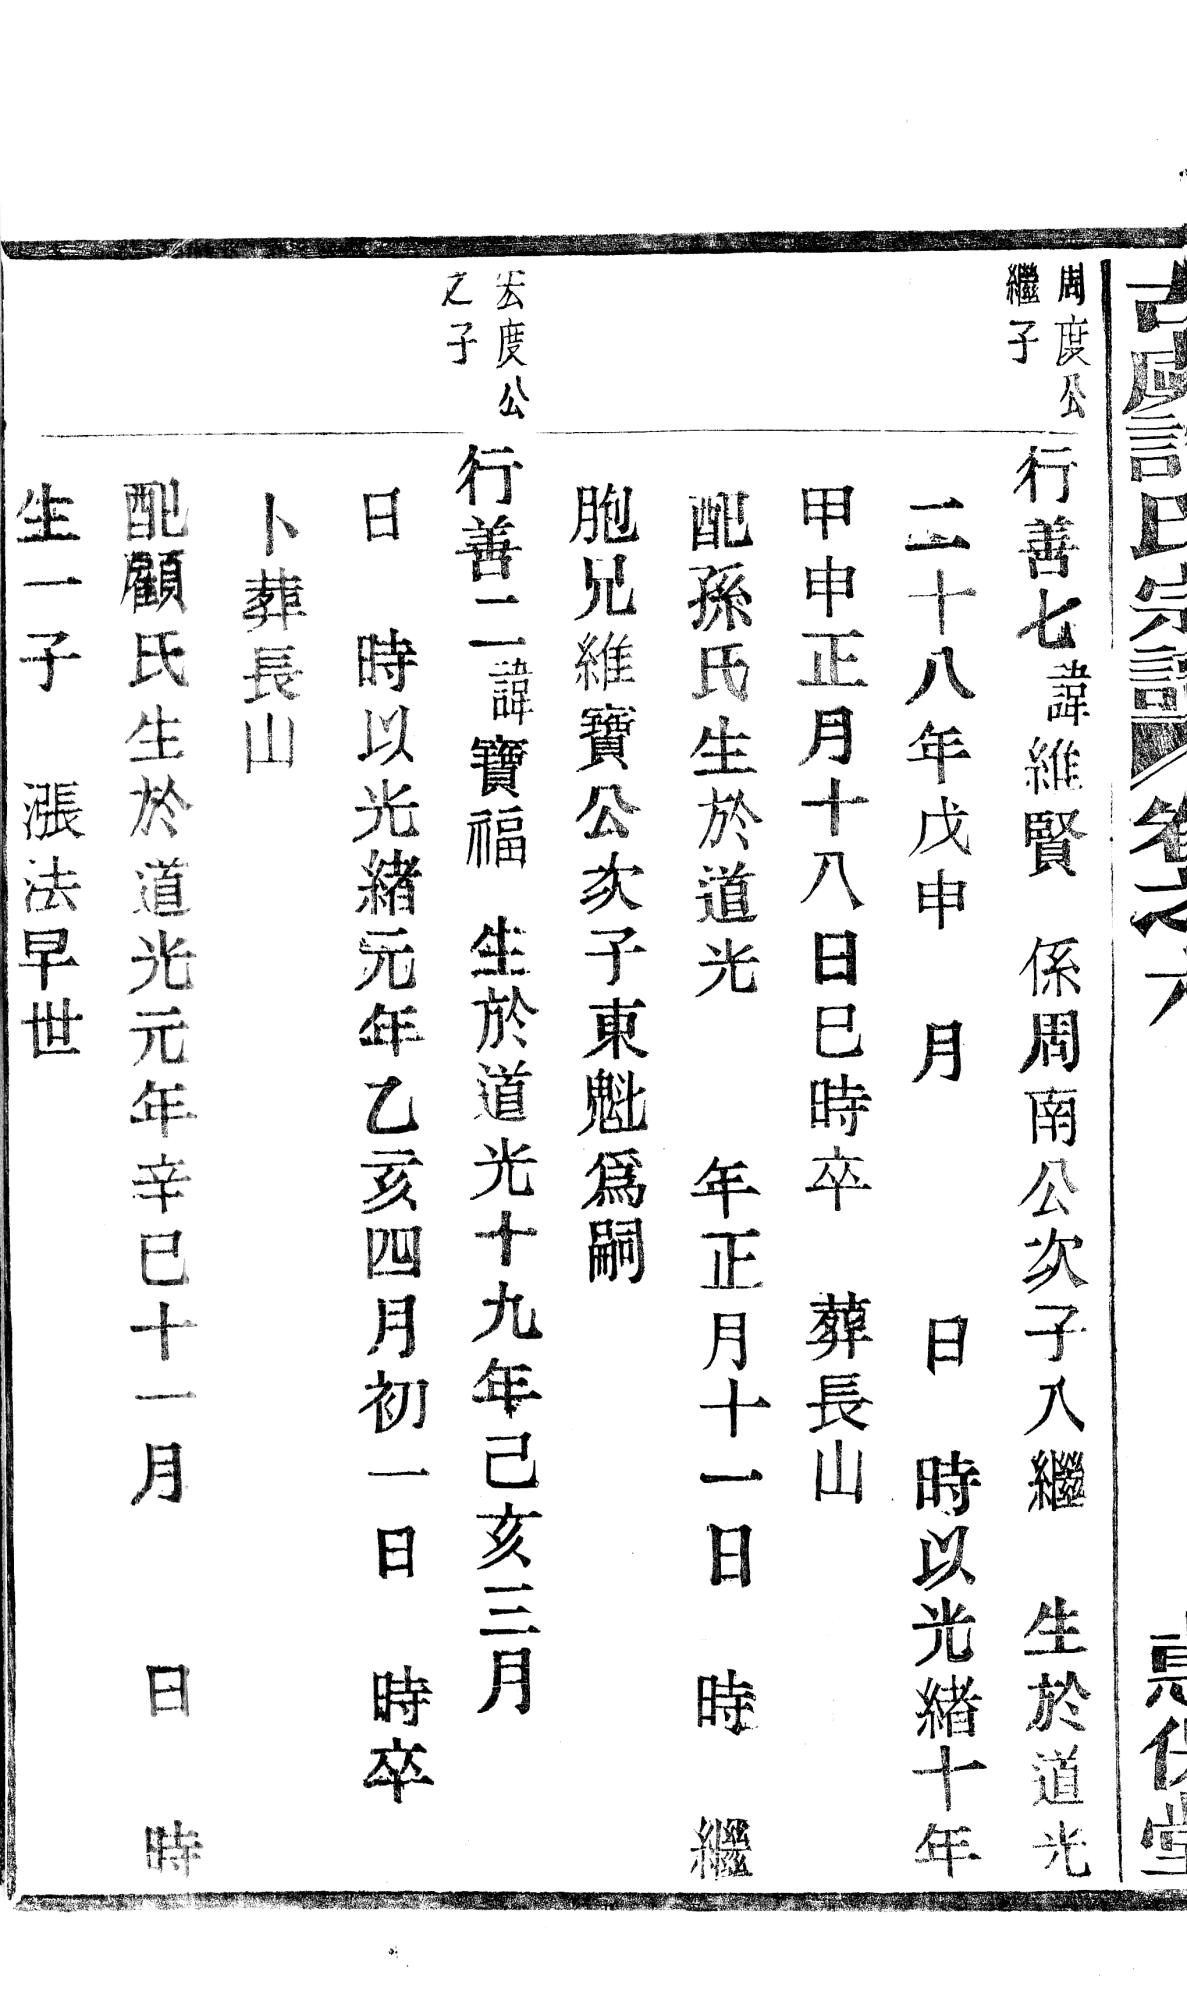 氏宗譜 卷之六
堂
周度公
繼子
行善七諱維賢 係周南公次子入繼 生於道光
二十八年戊申 月 日 時以光緒十年
甲申正月十八日巳時卒 葬長山
配孫氏生於道光 年正月十一日 時 繼
胞兄維寶公次子東魁爲嗣
宏度公
之子
行善二諱寶福 生於道光十九年己亥三月
日 時以光緒元年乙亥四月初一日 時卒
卜葬長山
配顧氏生於道光元年辛巳十一月 日 時
生一子 漲法早世